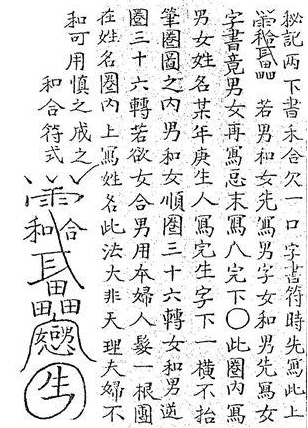 秘記丙下書禾合欠一口字書符時先寫此上
若男和女先寫男字女和男先寫女
字書竟男女再寫忌末寫八完下○此圈內寫
男女姓名某年庚生人寫完生字下一橫不抬
筆圈圖之內男和女順圈三十六轉女和男逆
圈三十六轉若欲女合男用本婦人髮一根團
在姓名圈內上寫姓名此法大非天理夫婦不
和可用慎之戒之
和合符式
和合
生